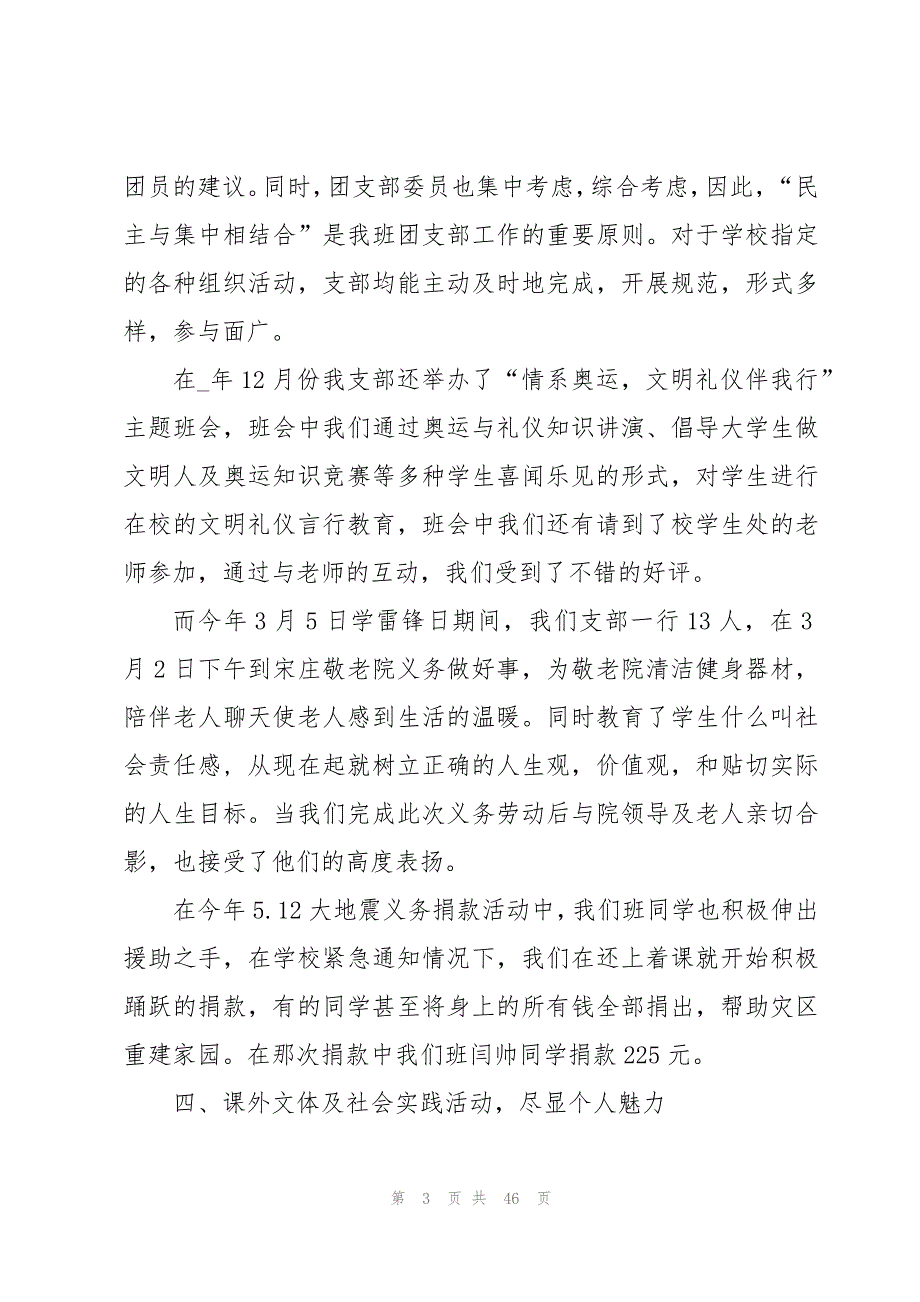 团员的建议。同时,团支部委员也集中考虑,综合考虑,因此,“民
主与集中相结合”是我班团支部工作的重要原则。对于学校指定
的各种组织活动，支部均能主动及时地完成，开展规范，形式多
样，参与面广。
在_年 12 月份我支部还举办了“情系奥运，文明礼仪伴我行”
主题班会，班会中我们通过奥运与礼仪知识讲演、倡导大学生做
文明人及奥运知识竞赛等多种学生喜闻乐见的形式，对学生进行
在校的文明礼仪言行教育，班会中我们还有请到了校学生处的老
师参加，通过与老师的互动，我们受到了不错的好评。
而今年 3 月 5 日学雷锋日期间，我们支部一行 13 人，在 3
月 2 日下午到宋庄敬老院义务做好事，为敬老院清洁健身器材，
陪伴老人聊天使老人感到生活的温暖。同时教育了学生什么叫社
会责任感，从现在起就树立正确的人生观，价值观，和贴切实际
的人生目标。当我们完成此次义务劳动后与院领导及老人亲切合
影，也接受了他们的高度表扬。
在今年 5.12 大地震义务捐款活动中,我们班同学也积极伸出
援助之手，在学校紧急通知情况下，我们在还上着课就开始积极
踊跃的捐款，有的同学甚至将身上的所有钱全部捐出，帮助灾区
重建家园。在那次捐款中我们班闫帅同学捐款 225 元。
四、课外文体及社会实践活动，尽显个人魅力
第 3 页 共 46 页